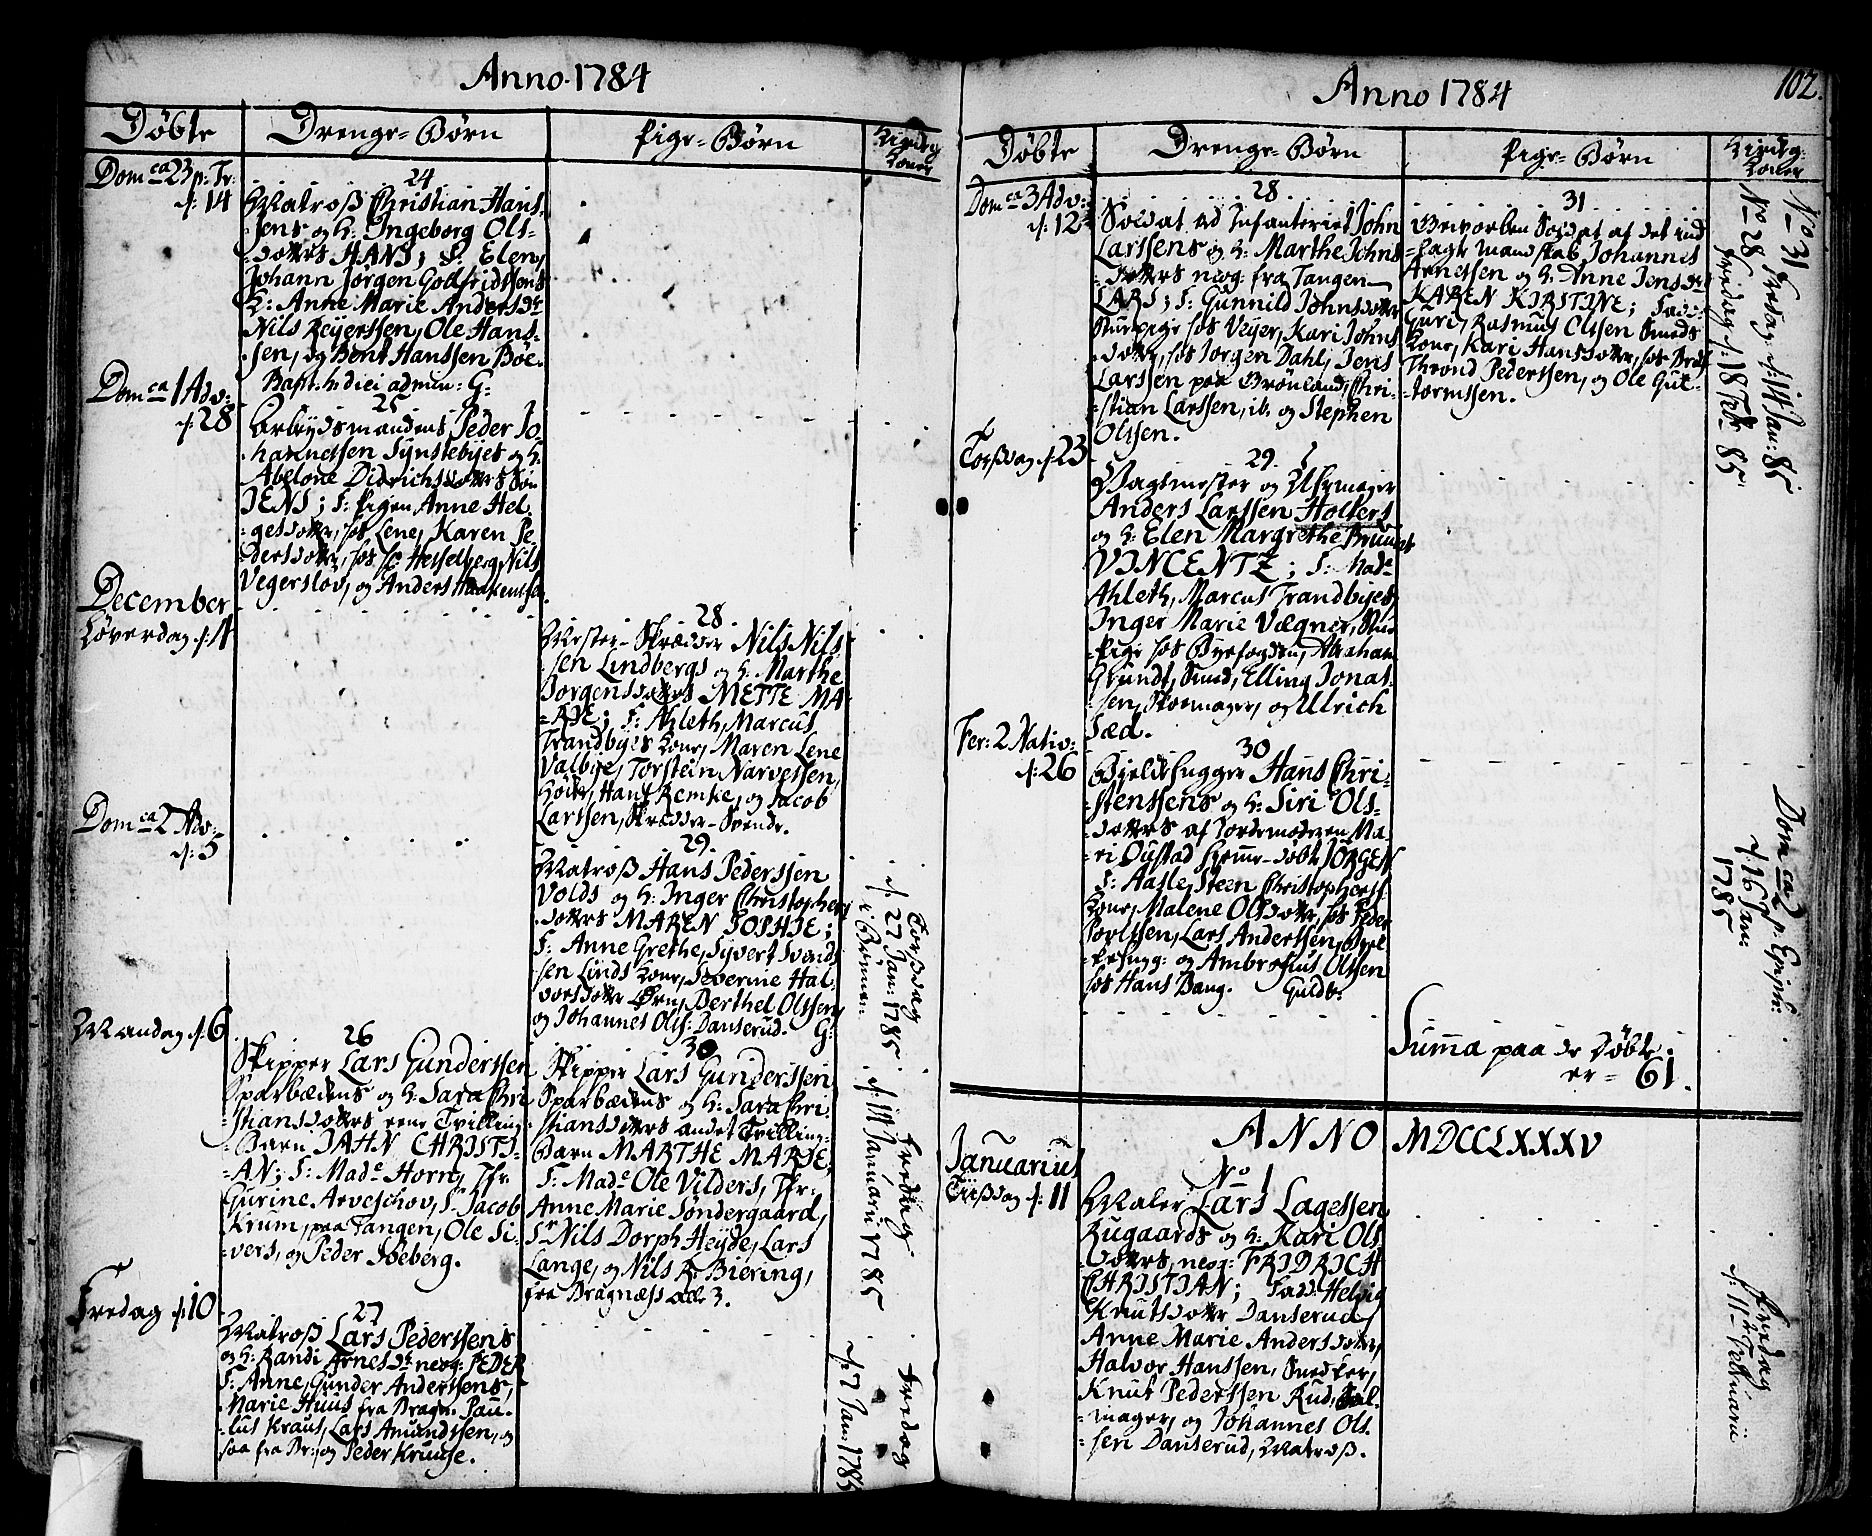 Anno 1784
Døbte
Drenge-Børn
Pige-Børn
Kirkeg:
Koner
Dom ca 23 p: Tr:
d: 14
24
Matros Christian Hans-
sens og H: Ingeborg Ols-
dotters HANS; F: Elen,
Johann Jørgen Godtfridssons
K: Anne Marie Andersdr
Nils Reyerssen, Ole Hans-
sen, og Bent Hanssen Böe.
Bapt. h: diei admin: G:
Dom ca 1 Adv:
d: 28
25
Arbeydsmandens Peder Jo-
hannessen Synstebyes og H:
Abelone Didrichsdotters Søn
JENS; F: Pigen Anne Hel-
gesdotter, hos Lene, Karen Pe-
dersdotter, hos Hesselberg, Nils
Vegersløv, og Anders
December
Løverdag d: 4
28
Mester-Skræder Nils Nils-
sen Lindbergs og H: Marthe
Jørgensdotters METTE MA-
RIE; F: Ahleth, Marcus
Trandbyes Kone, Maren Lene
Valbye, Torstein Narvessen,
Hans Remke, og Jacob
Larssen, Skrædder-Svende.
Dom ca 2 Adv:
d: 5
29.
Matros Hans Pederssen
Volds og H: Inger Christophers
dotters MAREN SOPHIE;
F: Anne Grethe, Syvert Svend-
sen Linds Kone, Severine Hal-
vorsdotter Ørn, Berthel Olssen,
og Johannes Olss: Danserud. G:
Torsdag
d: 27 Jan: 1785
Mandag d: 6
26
Skipper Lars Gunderssen
Sparbædens og H: Sara Chri
stiansdotters eene Tvilling-
Barn JAHN CHRISTI-
AN; F: Made Horn, Jfr
Gurine Arveschov, Sr Jacob
Krum, paa Tangen, Ole Si-
vers, og Peder Soeberg.
30
Skipper Lars Gunderssen
Sparbædens og H: Sara Chri-
stiansdotters andet Tvilling-
Barn MARTHE MARIE,
F: Made Ole Vilders, Jfr:
Anne Marie Søndergaard,
Sr Nils Dorph Heyde, Lars
Lange, og Nils R: Biering,
fra Bragnæss alle 3.
Fredag
d: 14 Januarii 1785
Fredag d: 10
27
Matros Lars Pederssens
og H: Randi Arnesdr neog: PEDER
F: Anne, Gunder Anderssens,
Marie Huus fra Bragn: Pau-
lus Kraus, Lars Amundssen, og
saa fra Br: og Peder Kruuse.
Fredag
d: 7 Jan: 1785
Anno 1784
102.
Døbte
Drenge-Børn
Pige-Børn
Kirkeg:
Koner
Dom ca 3 Adv:
d: 12
28
Soldat ved Infanteriet John
Larssens og H: Marthe Johns
dotters neog. fra Tangen
LARS; F: Gunnild Johnsdotter
Stuepige hos Veyer, Kari Johns
dotter, hos Jørgen Dahl, Jens
Larssen paa Grønland, Chri-
stian Larssen, ib. og Stephen
Olssen.
31
Geworben Soldat af det ind
lagte Mandskab Johannes
Arnessen og H: Anne Jensdrs
KAREN KIRSTINE; Fadd:
Guri, Rasmus Olssen Smeds
Kone, Kari Hansdotter, hos
Thrond Pederssen, og Ole Gut-
tormssen.
No 31
Fredag d: 14 Jan: 85
No 28
Fredag d: 18 Febr 85
Torsdag d: 23
29.
Vagtmester og Uhrmager
Anders Larssen Hollers
og H: Elen Margrethe Bruuns
VINCENTZ; F: Made
Ahleth, Marcus Trandbyes,
Inger Marie Vægner, Stue
Pige hos Byefogden, Abraham
Grundt, Smed, Elling Jonas-
sen, Skomager, og Ulrich
Sæd.
Fer: 2 Nativ:
d: 26
30
Hans Chri-
stenssens og H: Siri Ols-
dotters af Jordemoderen Ma-
ri Oustad hjemme-døbte JØRGEN
F: Aasle, Steen Christophers
Kone, Malene Olsdotter, hos Peder
Povlssen, Lars Anderssen,
og Ambrosius Olssen
hos Hans Bang. Guldbr:
Dom ca 2 p: Epiph:
d: 16 Jan:
1785
Summa paa de Døbte
er = 61.
ANNO MDCCLXXXV
Januarius
Tiisdag d: 11
No 1
Maler Lars Lagessen
Rugaards og H: Kari Ols
dotters, neog: FRIDRICH
CHRISTIAN; Fadd: Helvig
Knutsdotter Danserud,
Anne Marie Andersdotter,
Halvor Hanssen, Snedker,
Knut Pederssen Rud,
mager, og Johannes Ols-
sen Danserud, Matros.
Fredag
d: 11te Februarii